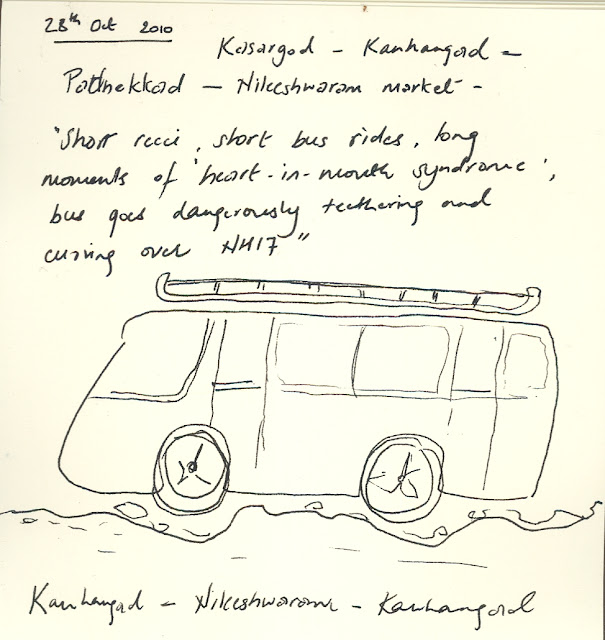 28th Oct 2010
Kasargod - Kanhangad -
Patnekkad - Nileshwaram market -
"Short recci, short bus rides, long
moments of 'heart-in-mouth syndrome',
bus goes dangerously teethering and
curving over NH17"
Kanhangad - Nileshwaram - Kanhangad